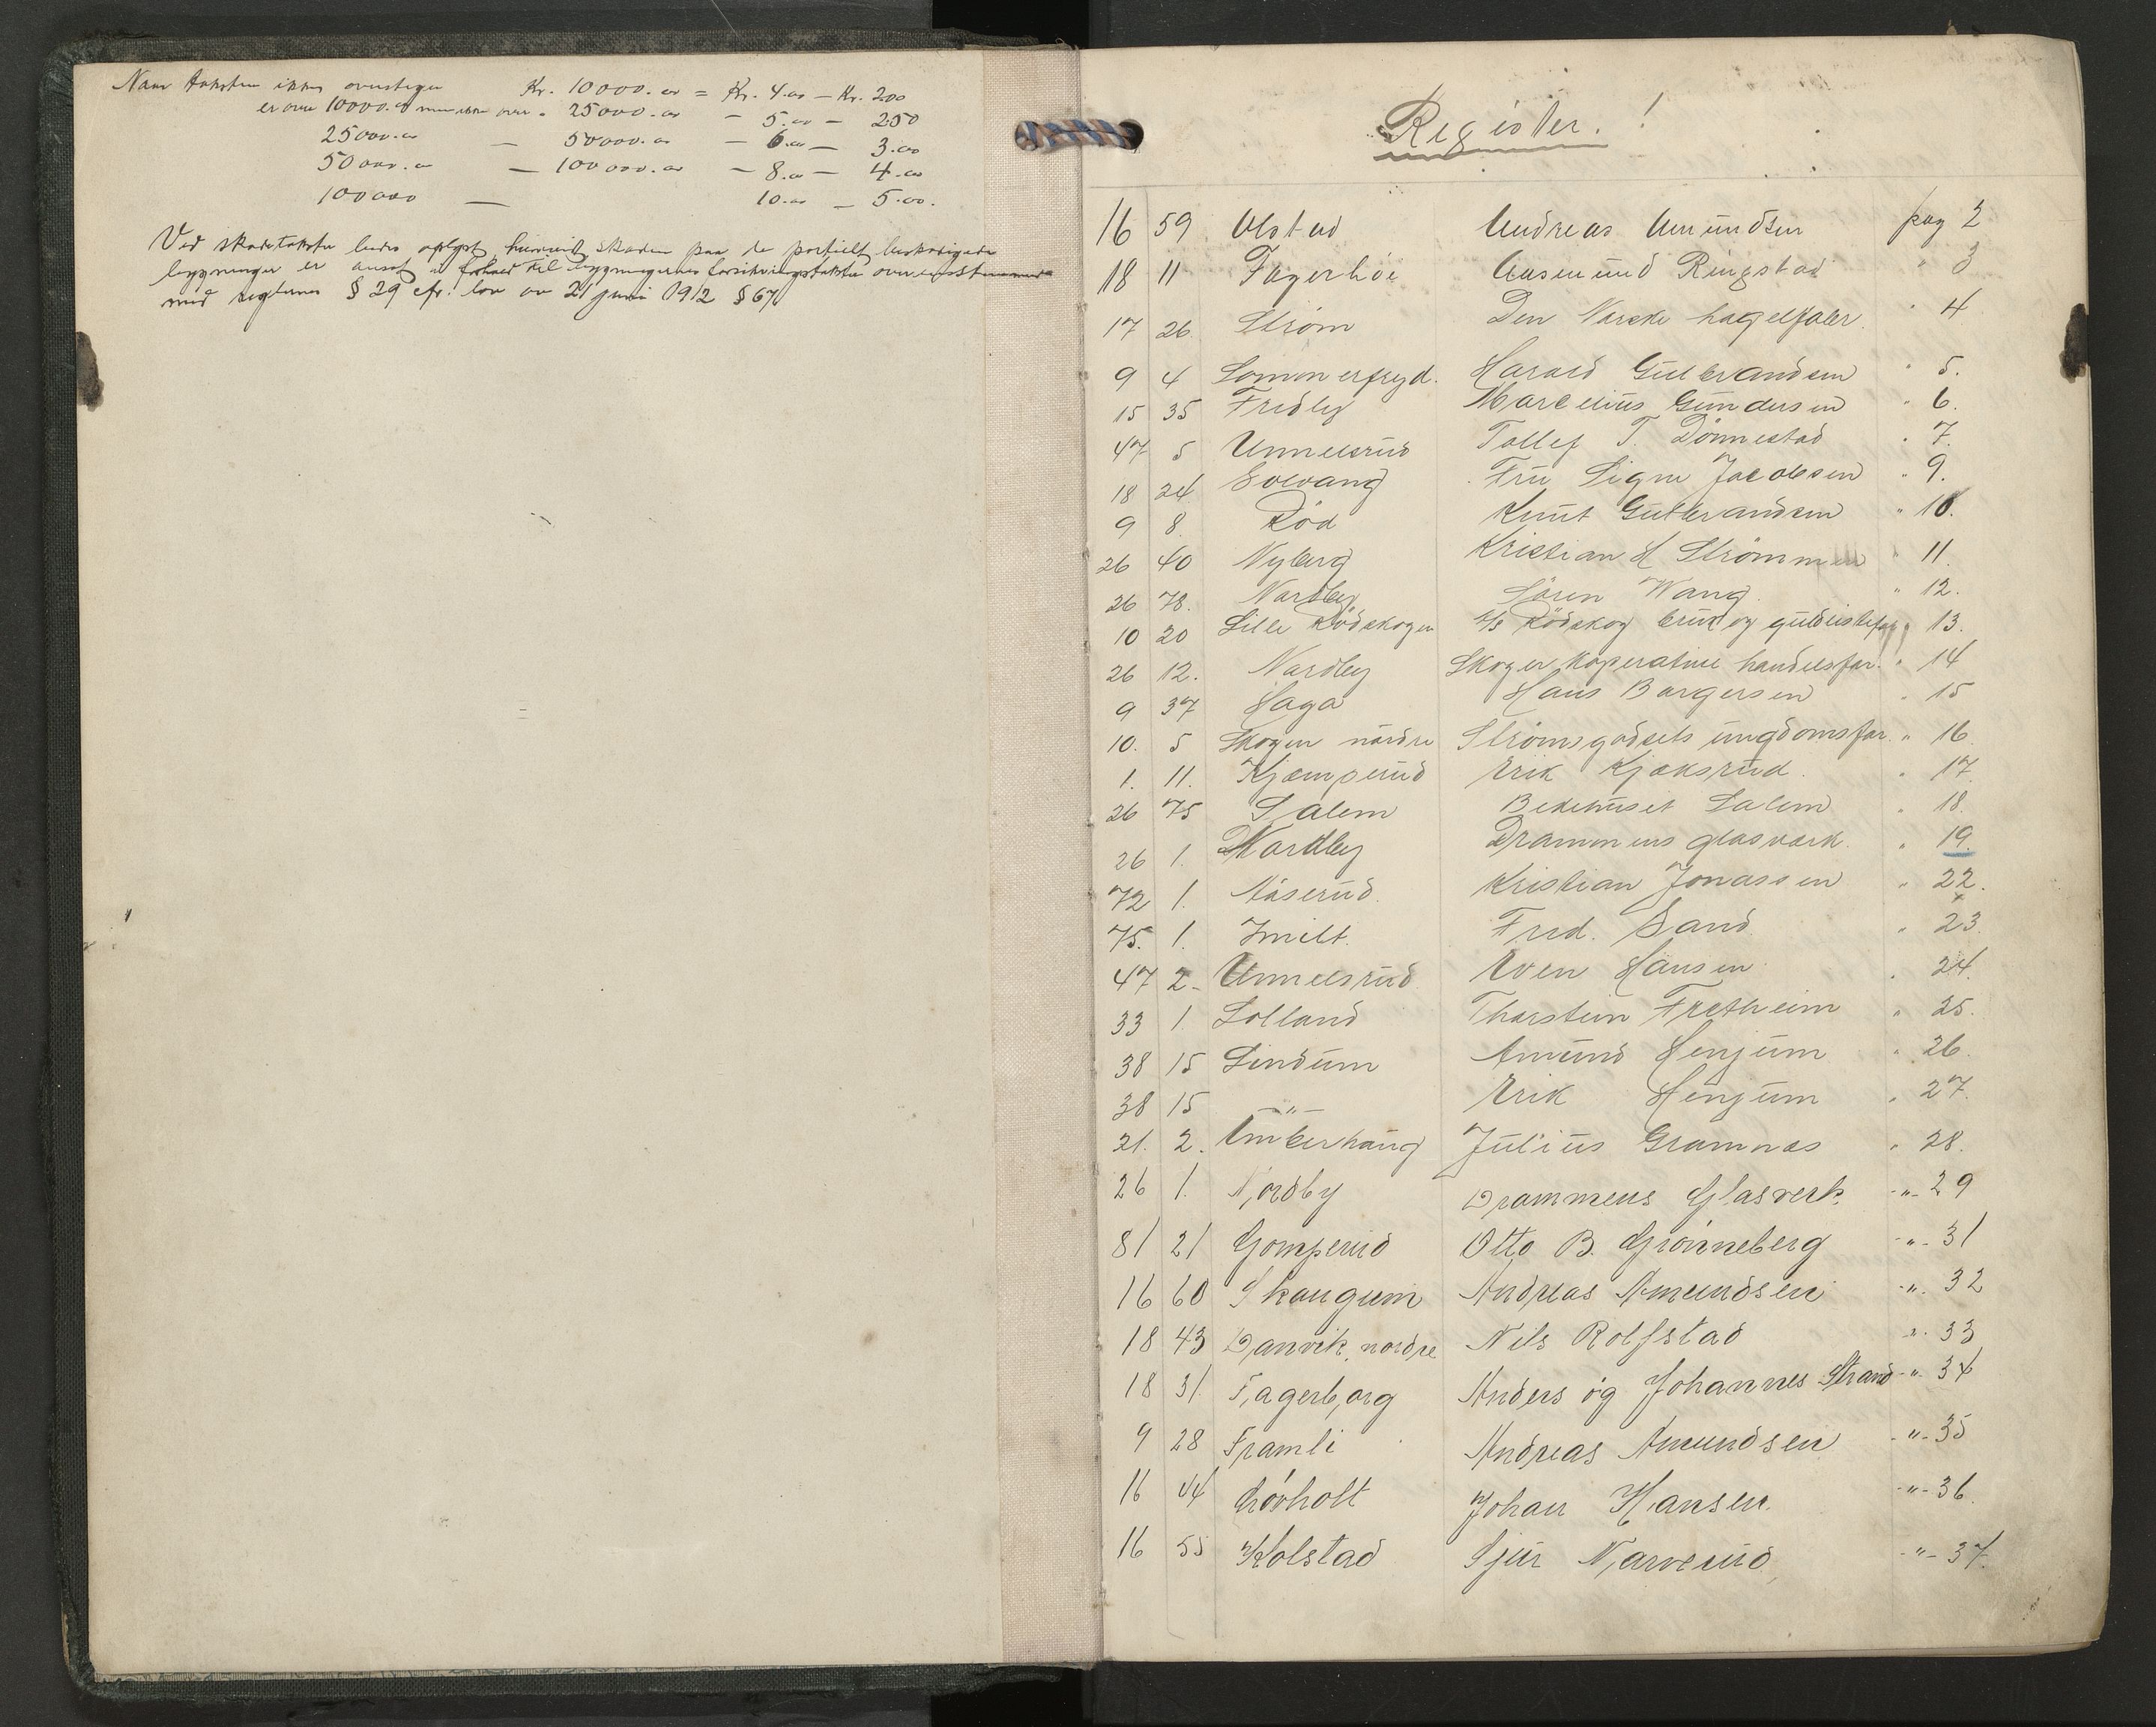 Naar taksten ikke overstiger Kr. 10000.00 = Kr. 4.00 - Kr. 200
er over 10000.00 men ikke over " 25000.00 - 5.00 - 250
25000.00 - 50000.00 - 6.00 - 3.00
50000.00 - 100000.00 - 8.00 - 4.00
100000 - 10.00 - 5.00.
Ved skadetakster bedes oplyst hvorvidt skaden paa de partielt beskadigede
bygninger er ansat i forhold til bygningernes forsikringstakster overensstemmende
med reglernes § 29 cfr. lov av 21 juni 1912 § 67
Register. !
16 59 Olstad Andreas Amundsen pag 2
18 11 Fagerhöi Aasmund Ringstad " 3
17 26 Ström Den Norske hagelfabr. " 4
9 4 Sommerfryd. Harald Gulbrandsen " 5.
15 35 Fredly Marcelius Gundersen " 6.
47 5 Unnelsrud Tollef T. Dönnestad " 7.
18 24 Solvang Fru Signe Jacobsen " 9.
9 8 Röd Knut Gulbrandsen " 10.
26 40 Nyberg Kristian H Strömmen " 11.
26 78. Nordby Sören Wang " 12.
10 20 Lille Rödskogen A/S Rödskog bruk og guldlistefab. " 13.
26 12. Nordby Skoger koperative handelsfor. " 14
9 37 Haga Hans Borgersen " 15
10. 5 Skogen nordre Strömsgodsets ungdomsfor. " 16
1. 11. Kjæmperud Erik Kjøksrud. " 17
26 75 Salem Bedehuset Salem " 18.
26 1. Nordby Drammens glasværk. " 19.
72 1. Aaserud. Kristian Jonassen " 22.
75. 1. Imilt. Fred. Sand. " 23.
47 2. Unnelsrud Even Hansen " 24.
33 1 Solland Thorstein Fretheim " 25.
38 15 Lindum Amund Henjum " 26.
38 15 — " — Erik Henjum " 27.
21. 2. Imberhaug Julius Gramnæs " 28.
26 1. Nordby Drammens Glasverk. - " - 29
81 21 Gomperud Otto B. Grönneberg - " - 31
16 60 Skaugum Andreas Amundsen - " - 32
18 43 Danvik, nordre Nils Rolfstad - " - 33
18 31 Fagerborg Anders og Johannes Strand - " - 34
9 28 Framli Andreas Amundsen - " - 35
16 44 Lövholt Johan Hansen. - " - 36.
16 55 Kolstad Sjur Narverud - " - 37.